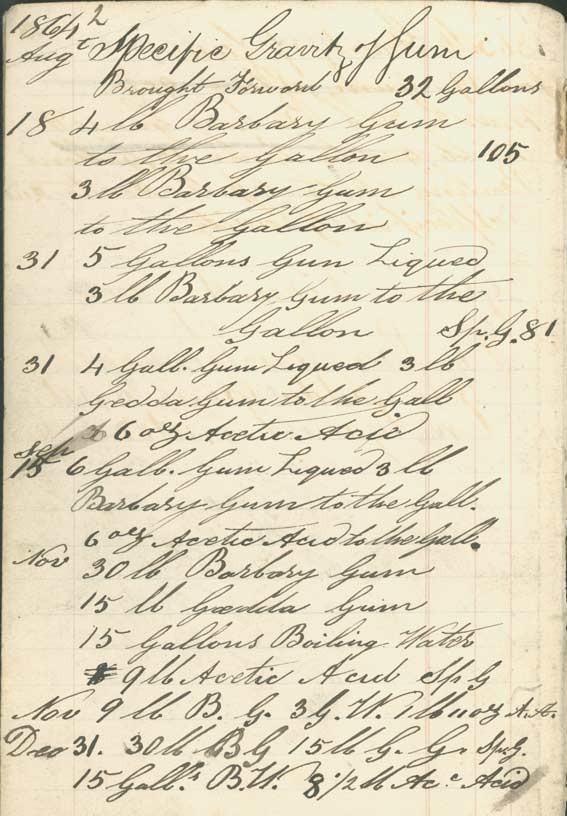 1864 2
Augt Specific Gravity of Gum
Brought Forward 32 Gallons
18 4 lb Barbary Gum
to the Gallon 105
3 lb Barbary Gum
to the Gallon
31 5 Gallons Gum Liqued
3 lb Barbary Gum to the
Gallon Sp. G. 81
31 4 Gall. Gum Liqued 3 lb
Gedda Gum to the Gall
6 oz Acetic Acid
Sep
15 6 Gall. Gum Liqued 3 lb
Barbary Gum to the Gall.
6 oz Acetic Acid to the Gall.
Nov 30 lb Barbary Gum
15 lb Gedda Gum
15 Gallons Boiling Water
9 lb Acetic Acid Sp G
Nov 9 lb B. G. 3 G. W. 1 lb 11 oz A. A.
Dec 31. 30 lb B G 15 lb G. G. Sp G.
15 Galls B. W. 8 1/2 lb Ac. Acid